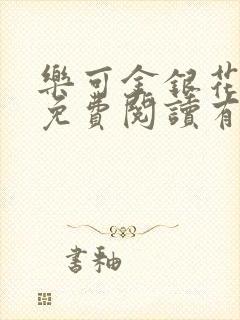 樂可金銀花
免費閱讀有
書釉